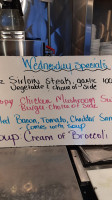 Wednesday Specials
oz Sirloin Steak, garlic
Vegetable & choice of Side
Chicken Mushroom
Burger choice of Side
Bacon, Tomato, Cheddar
comes with soup
Soup Cream of Broccoli